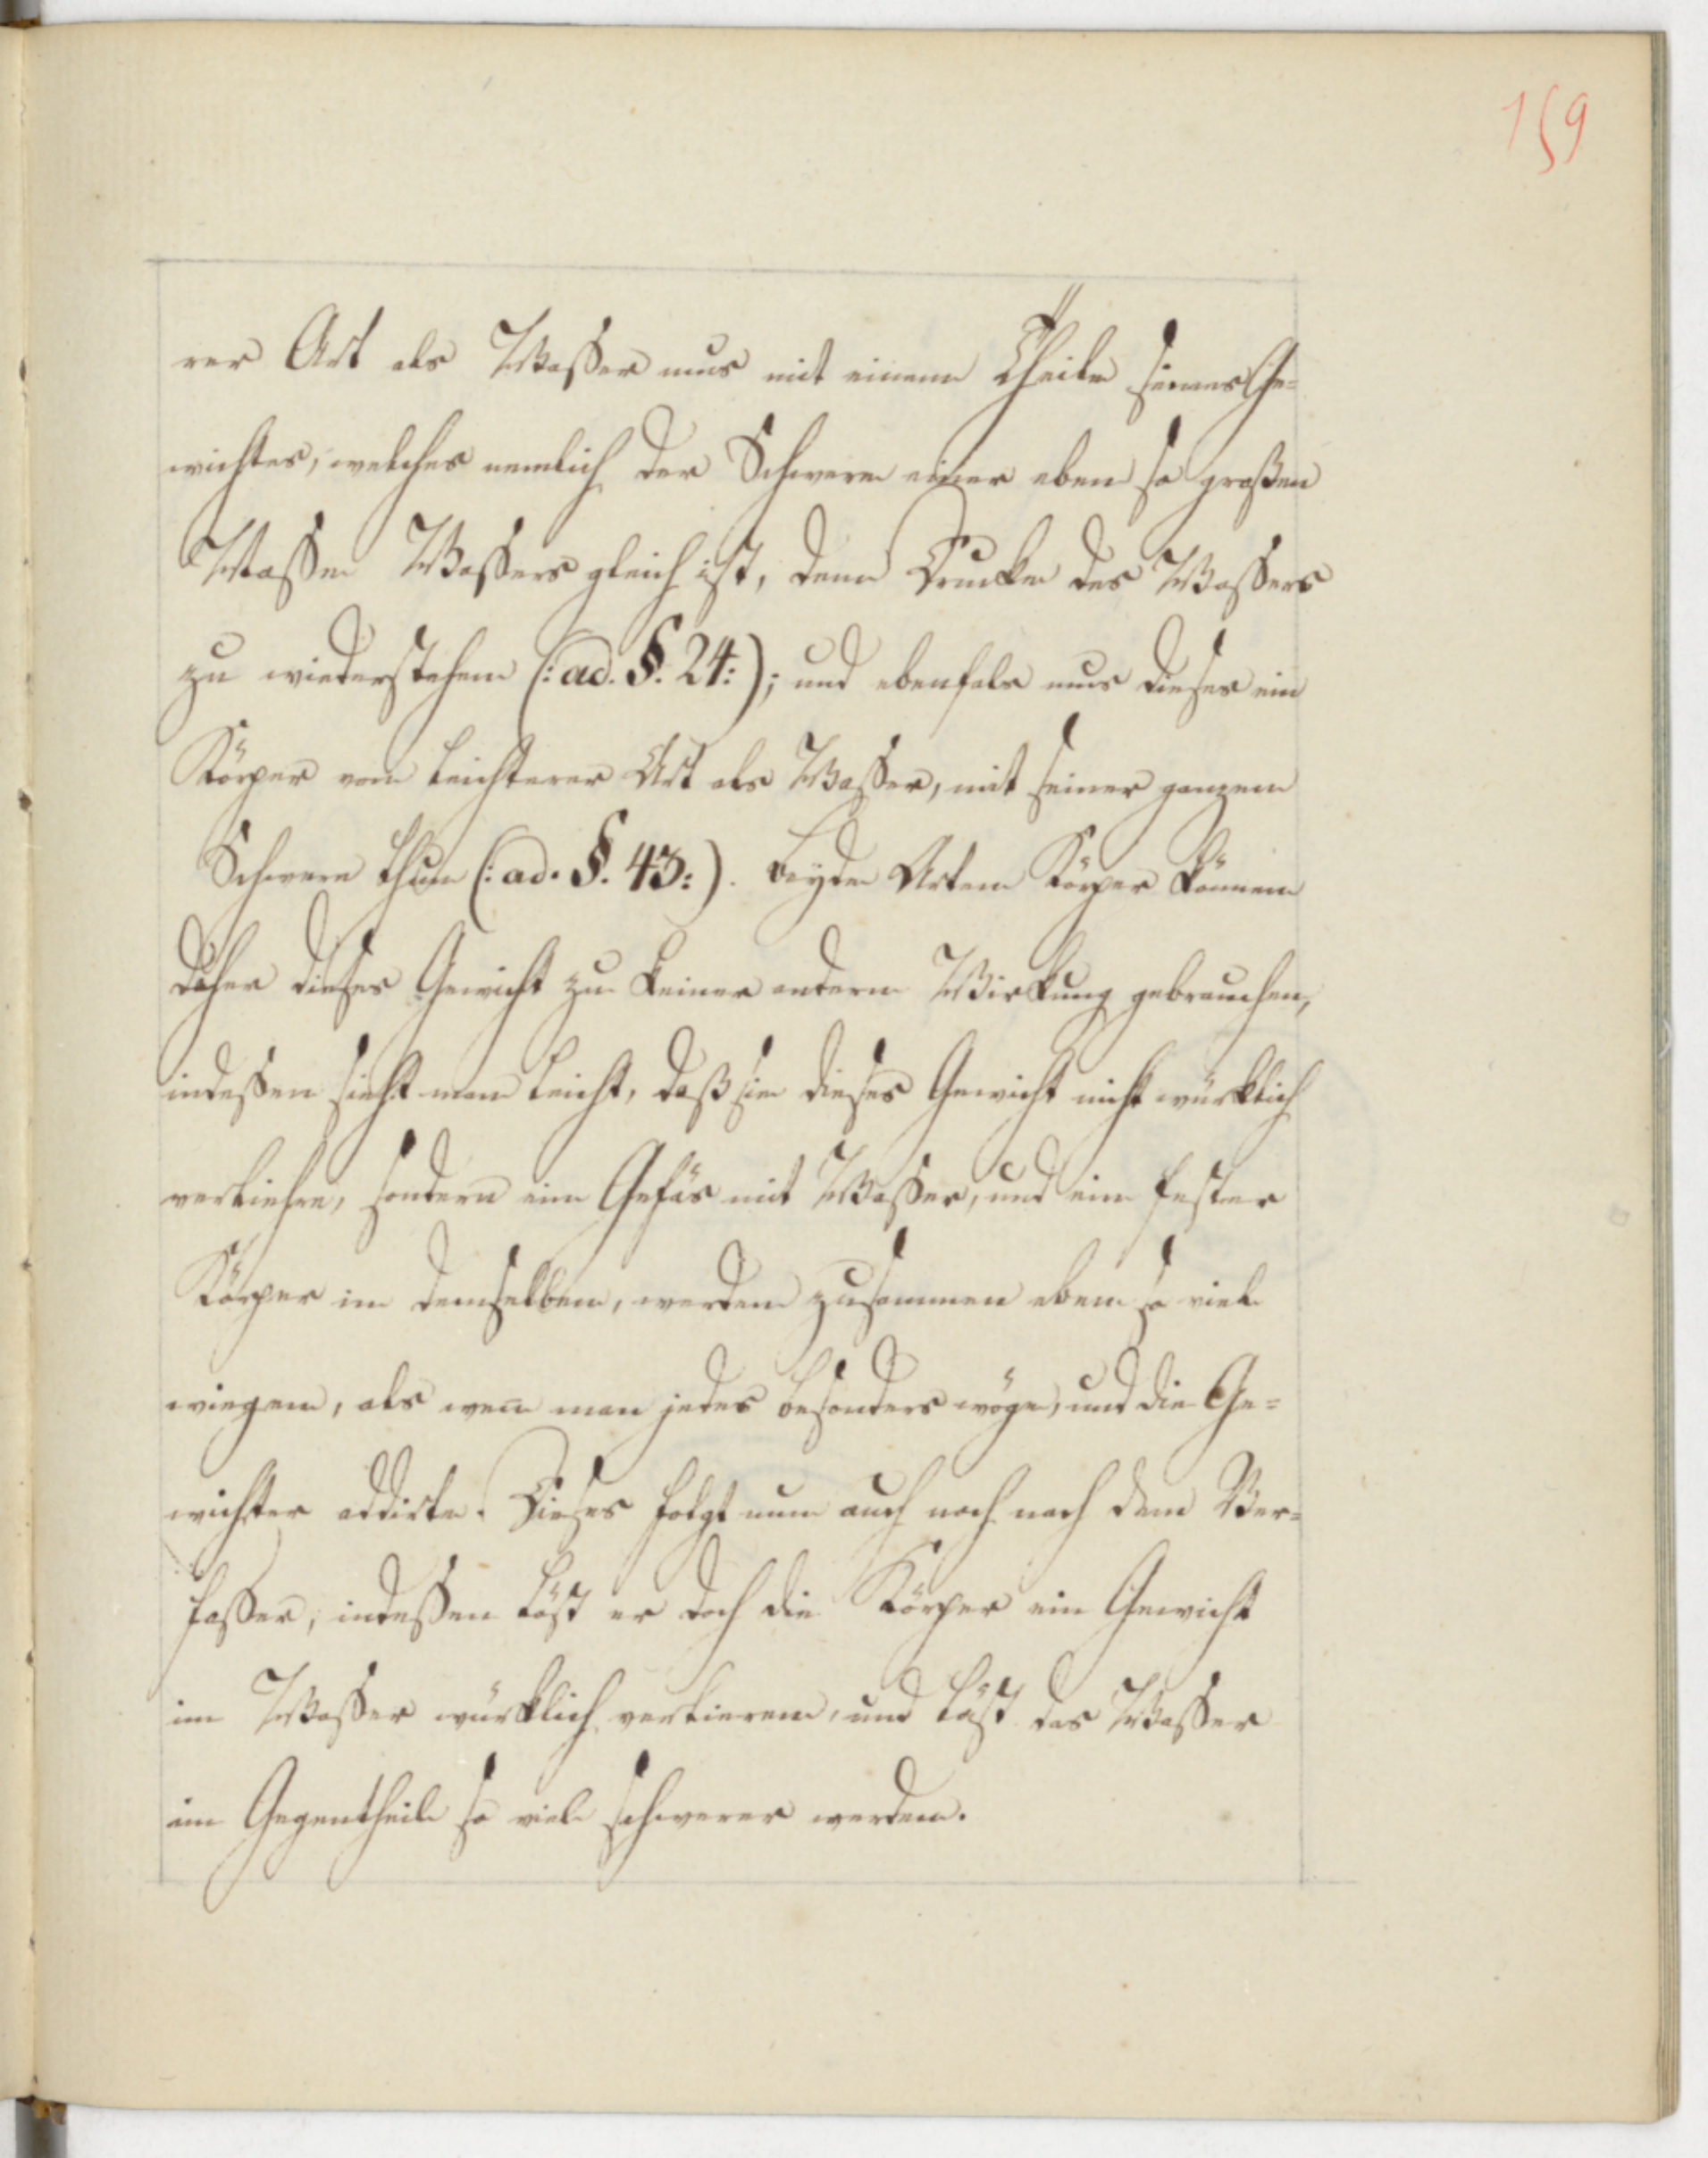 159
rer Art als Wasser mus mit einem Theile seines Ge=
wichtes, welches nemlich der Schwere einer eben so großen
Masse Wassers gleich ist, dem Drucke des Wassers
zu wiederstehen (: ad. §. 24:); und ebenfals mus dieses ein
Körper von leichterer Art als Wasser, mit seiner ganzen
Schwere thun (: ad. §. 43:). Beyde Arten Körper können
daher dieses Gewicht zu keiner andern Wirkung gebrauchen,
indessen sieht man leicht, daß sie dieses Gewicht nicht würklich
verliehre, sondern ein Gefäs mit Wasser, und ein fester
Körper in demselben, werden zusammen eben so viel
wiegen, als wen̅ man jedes besonders wöge, und die Ge=
wichter addirte. Dieses folgt nun auch noch nach dem Ver=
fasser, indessen läst er doch die Körper ein Gewicht
im Wasser würklich verlieren, und läst das Wasser
im Gegentheile so viel schwerer werden.